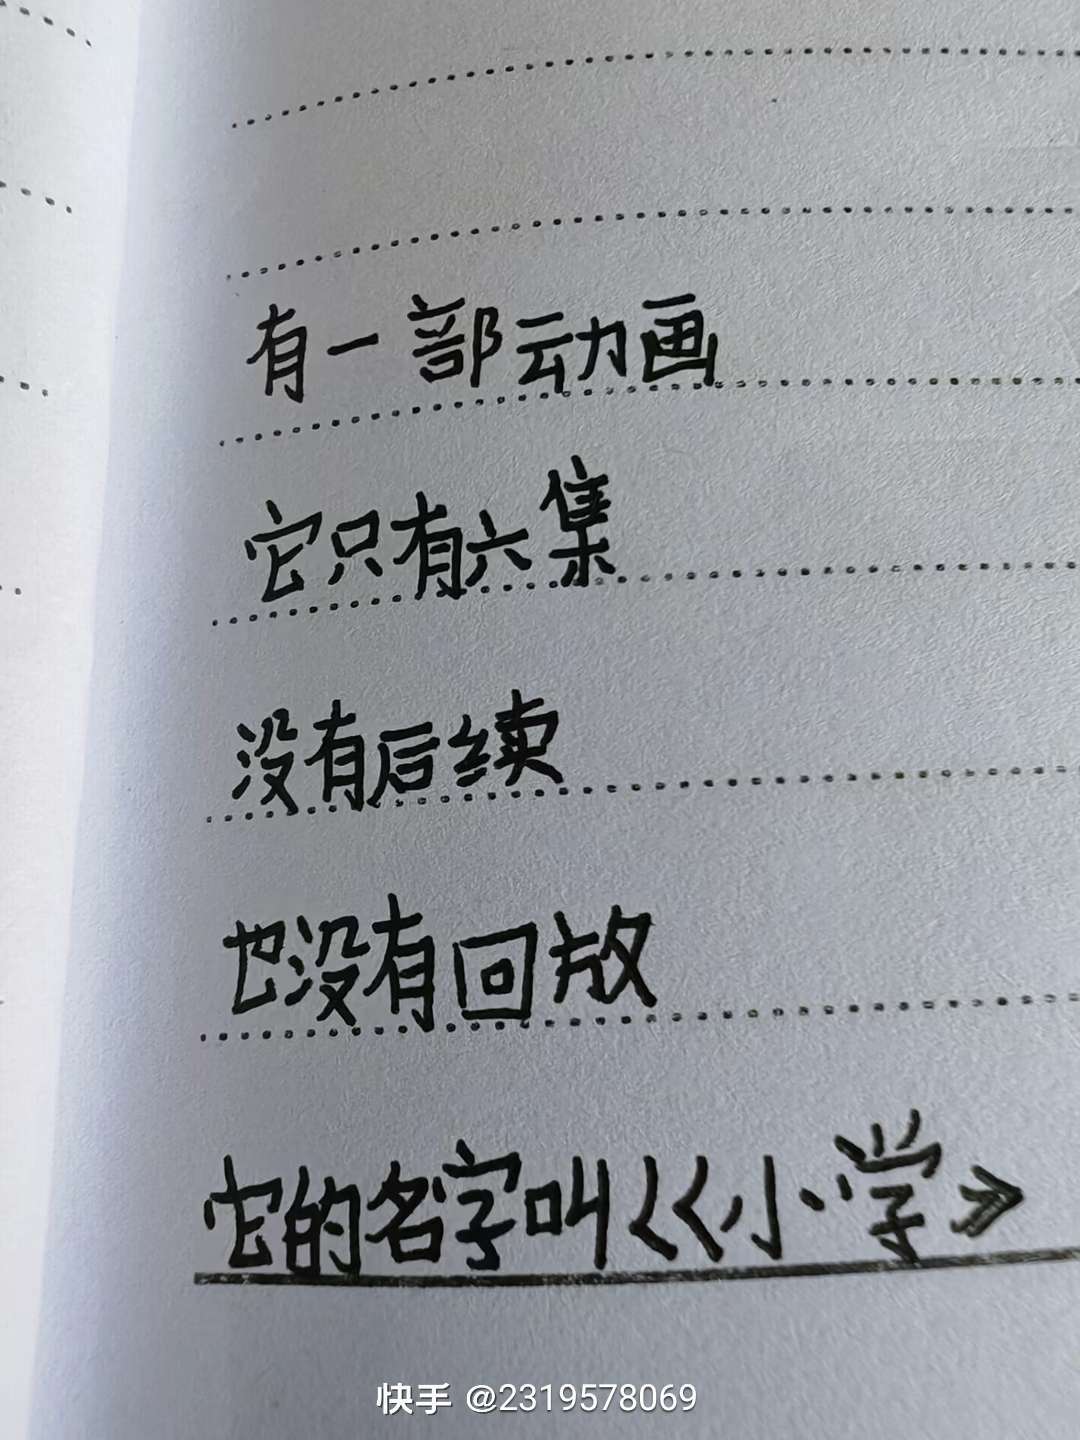 有一部动画
它只有六集
没有后续
也没有回放
它的名字叫《小学》
快手 @2319578069